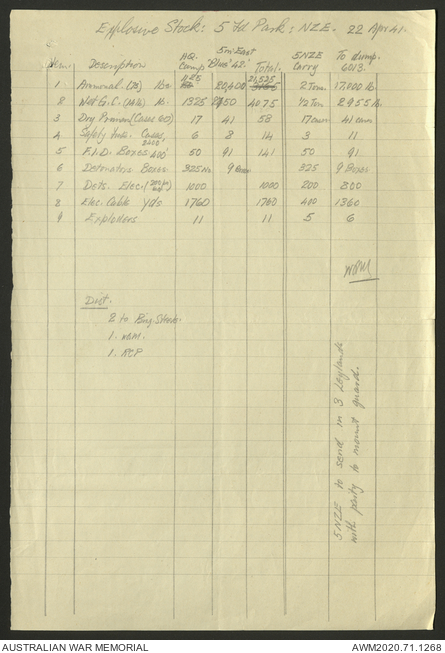 Explosive Stock: 5 Fd Park: NZE. 22 Apr 41.
Item. Description HQ. Camp 5m East 'Blue' 42. Total. 5NZE Carry To dump. 6013.
1 Ammonal (25) lbs. 1125 20,400 21,525 2 Tons 17,000 lb.
2 Wet G.C. lb. 1325 2750 4075 1/2 Ton 2955 lb.
3 Dry Primers (Cases 60) 17 41 58 17 cases 41 cases
4 Safety fuse. Cases, 2200 6 8 14 3 11
5 F.I.D. Boxes 400 50 91 141 50 91
6 Detonators Boxes. 325 No. 9 Boxes 325 9 Boxes
7 Dets. Elec. 1000 1000 200 800
8 Elec. Cable Yds 1760 1760 400 1360
9 Exploders 11 11 5 6
Dist.
2 to
1.
1. RCP
5NZE to send in 3 Leylands
with party to mount guard.
AUSTRALIAN WAR MEMORIAL AWM2020.71.1268